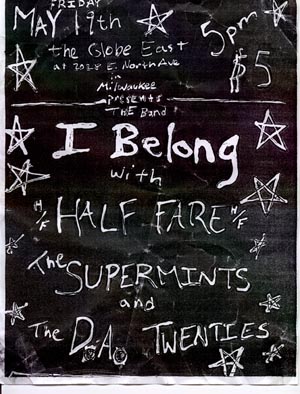 FRIDAY
MAY 19th
5pm
the Globe East
at 2028 E. North Ave
$5
in
Milwaukee
presents
THE Band
I Belong
with
H/F HALF FARE H/F
The SUPERMINTS
and
The D.A. TWENTIES